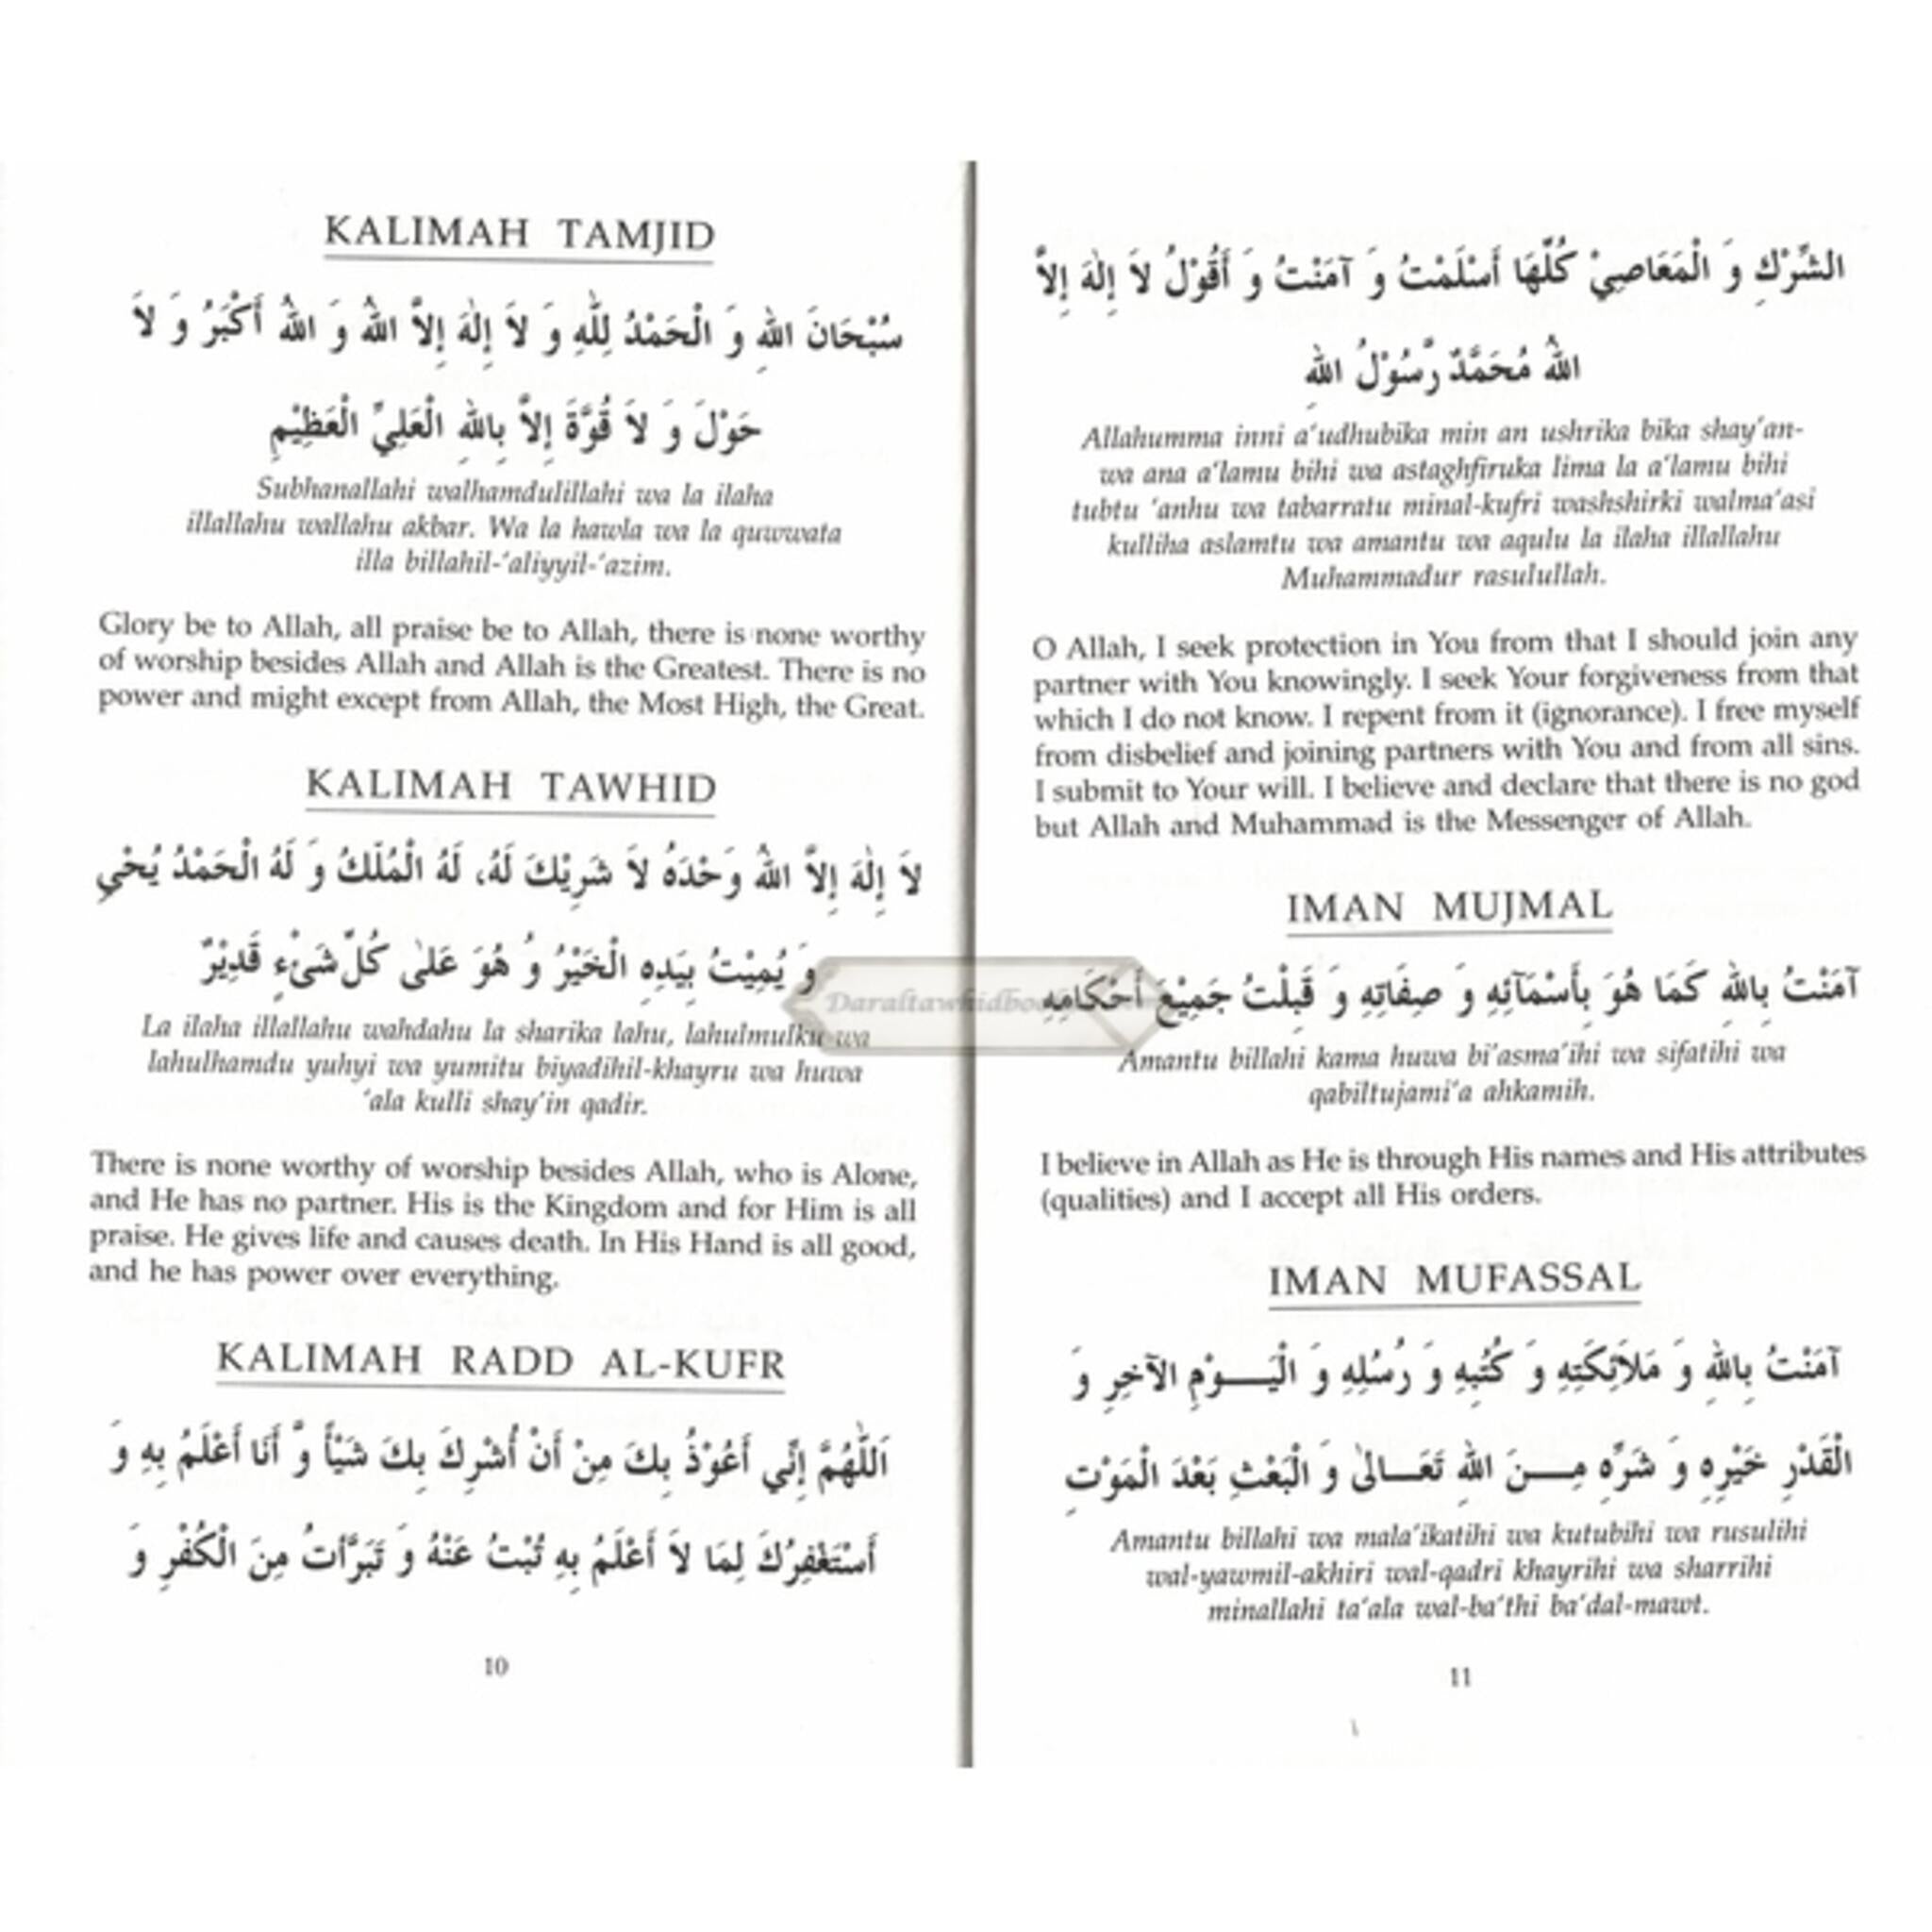 KALIMAH TAMJID
سُبْحَانَ اللهِ وَ الْحَمْدُ لِلّٰهِ وَ لاَ إِلٰهَ إِلاَّ اللهُ وَ اللهُ أَكْبَرُ وَ لاَ
حَوْلَ وَ لاَ قُوَّةَ إِلاَّ بِاللهِ الْعَلِيِّ الْعَظِيْمِ
Subhanallahi walhamdulillahi wa la ilaha
illallahu wallahu akbar. Wa la hawla wa la quwwata
illa billahil-‘aliyyil-‘azim.
Glory be to Allah, all praise be to Allah, there is none worthy
of worship besides Allah and Allah is the Greatest. There is no
power and might except from Allah, the Most High, the Great.
KALIMAH TAWHID
لاَ إِلٰهَ إِلاَّ اللهُ وَحْدَهُ لاَ شَرِيْكَ لَهُ، لَهُ الْمُلْكُ وَ لَهُ الْحَمْدُ يُحْيِ
وَ يُمِيْتُ بِيَدِهِ الْخَيْرُ وَ هُوَ عَلىٰ كُلِّ شَىْءٍ قَدِيْرٌ
La ilaha illallahu wahdahu la sharika lahu, lahulmulku wa
lahulhamdu yuhyi wa yumitu biyadihil-khayru wa huwa
‘ala kulli shay’in qadir.
There is none worthy of worship besides Allah, who is Alone,
and He has no partner. His is the Kingdom and for Him is all
praise. He gives life and causes death. In His Hand is all good,
and he has power over everything.
KALIMAH RADD AL-KUFR
اَللّٰهُمَّ إِنِّي أَعُوْذُ بِكَ مِنْ أَنْ أُشْرِكَ بِكَ شَيْأً وَّ أَنَا أَعْلَمُ بِهِ وَ
أَسْتَغْفِرُكَ لِمَا لاَ أَعْلَمُ بِهِ تُبْتُ عَنْهُ وَ تَبَرَّأْتُ مِنَ الْكُفْرِ وَ
10
الشِّرْكِ وَ الْمَعَاصِيْ كُلِّهَا أَسْلَمْتُ وَ آمَنْتُ وَ أَقُوْلُ لاَ إِلٰهَ إِلاَّ
اللهُ مُحَمَّدٌ رَّسُوْلُ اللهِ
Allahumma inni a‘udhubika min an ushrika bika shay’an-
wa ana a‘lamu bihi wa astaghfiruka lima la a‘lamu bihi
tubtu ‘anhu wa tabarratu minal-kufri washshirki walma‘asi
kulliha aslamtu wa amantu wa aqulu la ilaha illallahu
Muhammadur rasulullah.
O Allah, I seek protection in You from that I should join any
partner with You knowingly. I seek Your forgiveness from that
which I do not know. I repent from it (ignorance). I free myself
from disbelief and joining partners with You and from all sins.
I submit to Your will. I believe and declare that there is no god
but Allah and Muhammad is the Messenger of Allah.
IMAN MUJMAL
آمَنْتُ بِاللهِ كَمَا هُوَ بِأَسْمَآئِهِ وَ صِفَاتِهِ وَ قَبِلْتُ جَمِيْعَ أَحْكَامِهِ
Amantu billahi kama huwa bi’asma’ihi wa sifatihi wa
qabiltujami‘a ahkamih.
I believe in Allah as He is through His names and His attributes
(qualities) and I accept all His orders.
IMAN MUFASSAL
آمَنْتُ بِاللهِ وَ مَلاَئِكَتِهِ وَ كُتُبِهِ وَ رُسُلِهِ وَ الْيَوْمِ الآخِرِ وَ
الْقَدْرِ خَيْرِهِ وَ شَرِّهِ مِنَ اللهِ تَعَالىٰ وَ الْبَعْثِ بَعْدَ الْمَوْتِ
Amantu billahi wa mala’ikatihi wa kutubihi wa rusulihi
wal-yawmil-akhiri wal-qadri khayrihi wa sharrihi
minallahi ta‘ala wal-ba‘thi ba‘dal-mawt.
11